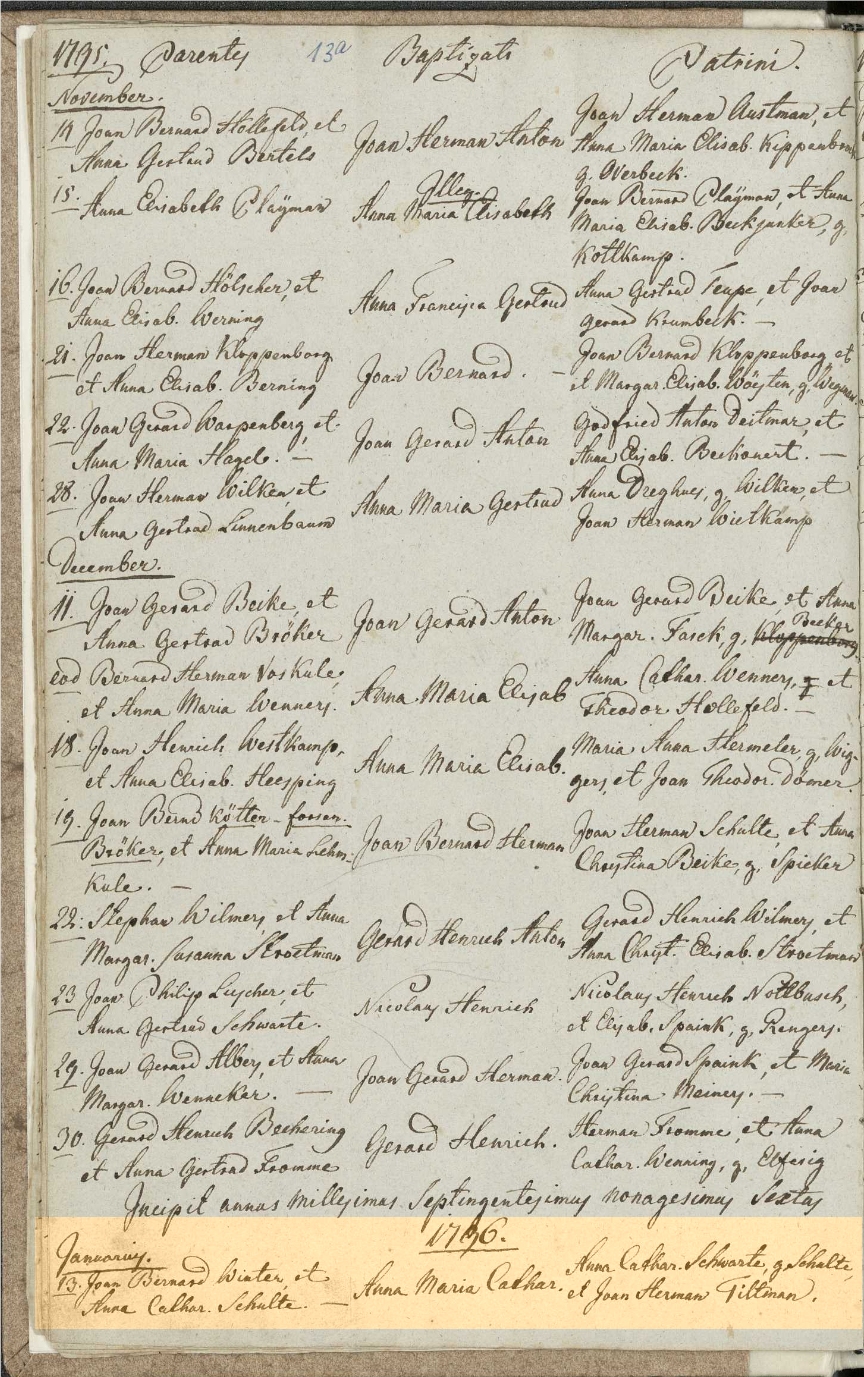 1795. Parentes 13a Baptizats Patrini.
November.
14 Joan Bernard Hollefeld, et
Anna Gertrud Bertels
Joan Herman Anton
Joan Herman Austman, et
Anna Maria Elisab. Kippenbrock
g. Overbeck.
15. Anna Elisabeth Plaÿman
Illeg.
Anna Maria Elisabeth
Joan Bernard Plaÿman, et Anna
Maria Elisab. Beckjunker, g.
Kottkamp.
16. Joan Bernard Hölscher, et
Anna Elisab. Werning
Anna Francisca Gertrud
Anna Gertrud Teupe, et Joan
Gerard Krumbeck. —
21. Joan Herman Kloppenborg
et Anna Elisab. Berning
Joan Bernard. —
Joan Bernard Kloppenborg et
et Margar. Elisab. Wöesten, g.
22. Joan Gerard Warpenberg, et
Anna Maria Hagele. —
Joan Gerard Anton
Godfried Anton Deitmar, et
Anna Elisab. Beckonert. —
28. Joan Herman Wilken, et
Anna Gertrud Linnenbaum
Anna Maria Gertrud
Anna Dreghues, g. Wilken, et
Joan Herman Wielkamp
December.
11. Joan Gerard Beike, et
Anna Gertrud Bröker
Joan Gerard Anton
Joan Gerard Beike, et Anna
Becker
Margar. Fasck, g. Kloppenborg.
eod Bernard Herman Voskule,
et Anna Maria Wenners.
Anna Maria Elisab
Anna Cathar. Wenners, g. et
Theodor Hollefeld. —
18. Joan Henrich Westkamp,
et Anna Elisab. Heesping
Anna Maria Elisab.
Maria Anna Hermeler, g. Wig-
gers, et Joan Theodor Dömer.
19. Joan Bernd Kötter – forsan
Bröker, et Anna Maria Lehm-
Kule. —
Joan Bernard Herman
Joan Herman Schulte, et Anna
Christina Beike, g. Spieker
22. Stephan Wilmers, et Anna
Margar. Susanna Stroetman
Gerard Henrich Anton
Gerard Henrich Wilmers, et
Anna Christ. Elisab. Stroetman
23 Joan Philip Luscher, et
Anna Gertrud Schwarte.
Nicolaus Henrich
Nicolaus Henrich Nottbusch,
et Elisab. Spaink, g. Rengers.
29. Joan Gerard Albers, et Anna
Margar. Wenneker. —
Joan Gerard Herman.
Joan Gerard Spaink, et Maria
Christina Meiners. —
30. Gerard Henrich Beckering
et Anna Gertrud Fromme
Gerard Henrich.
Herman Fromme, et Anna
Cathar. Wenning, g. Elfesig
Incipit annus millesimus Septingentesimus nonagesimus Sextus
1796.
Januarius.
13. Joan Bernard Winter, et
Anna Cathar. Schulte. —
Anna Maria Cathar.
Anna Cathar. Schwarte, g. Schulte,
et Joan Herman Tiltman.